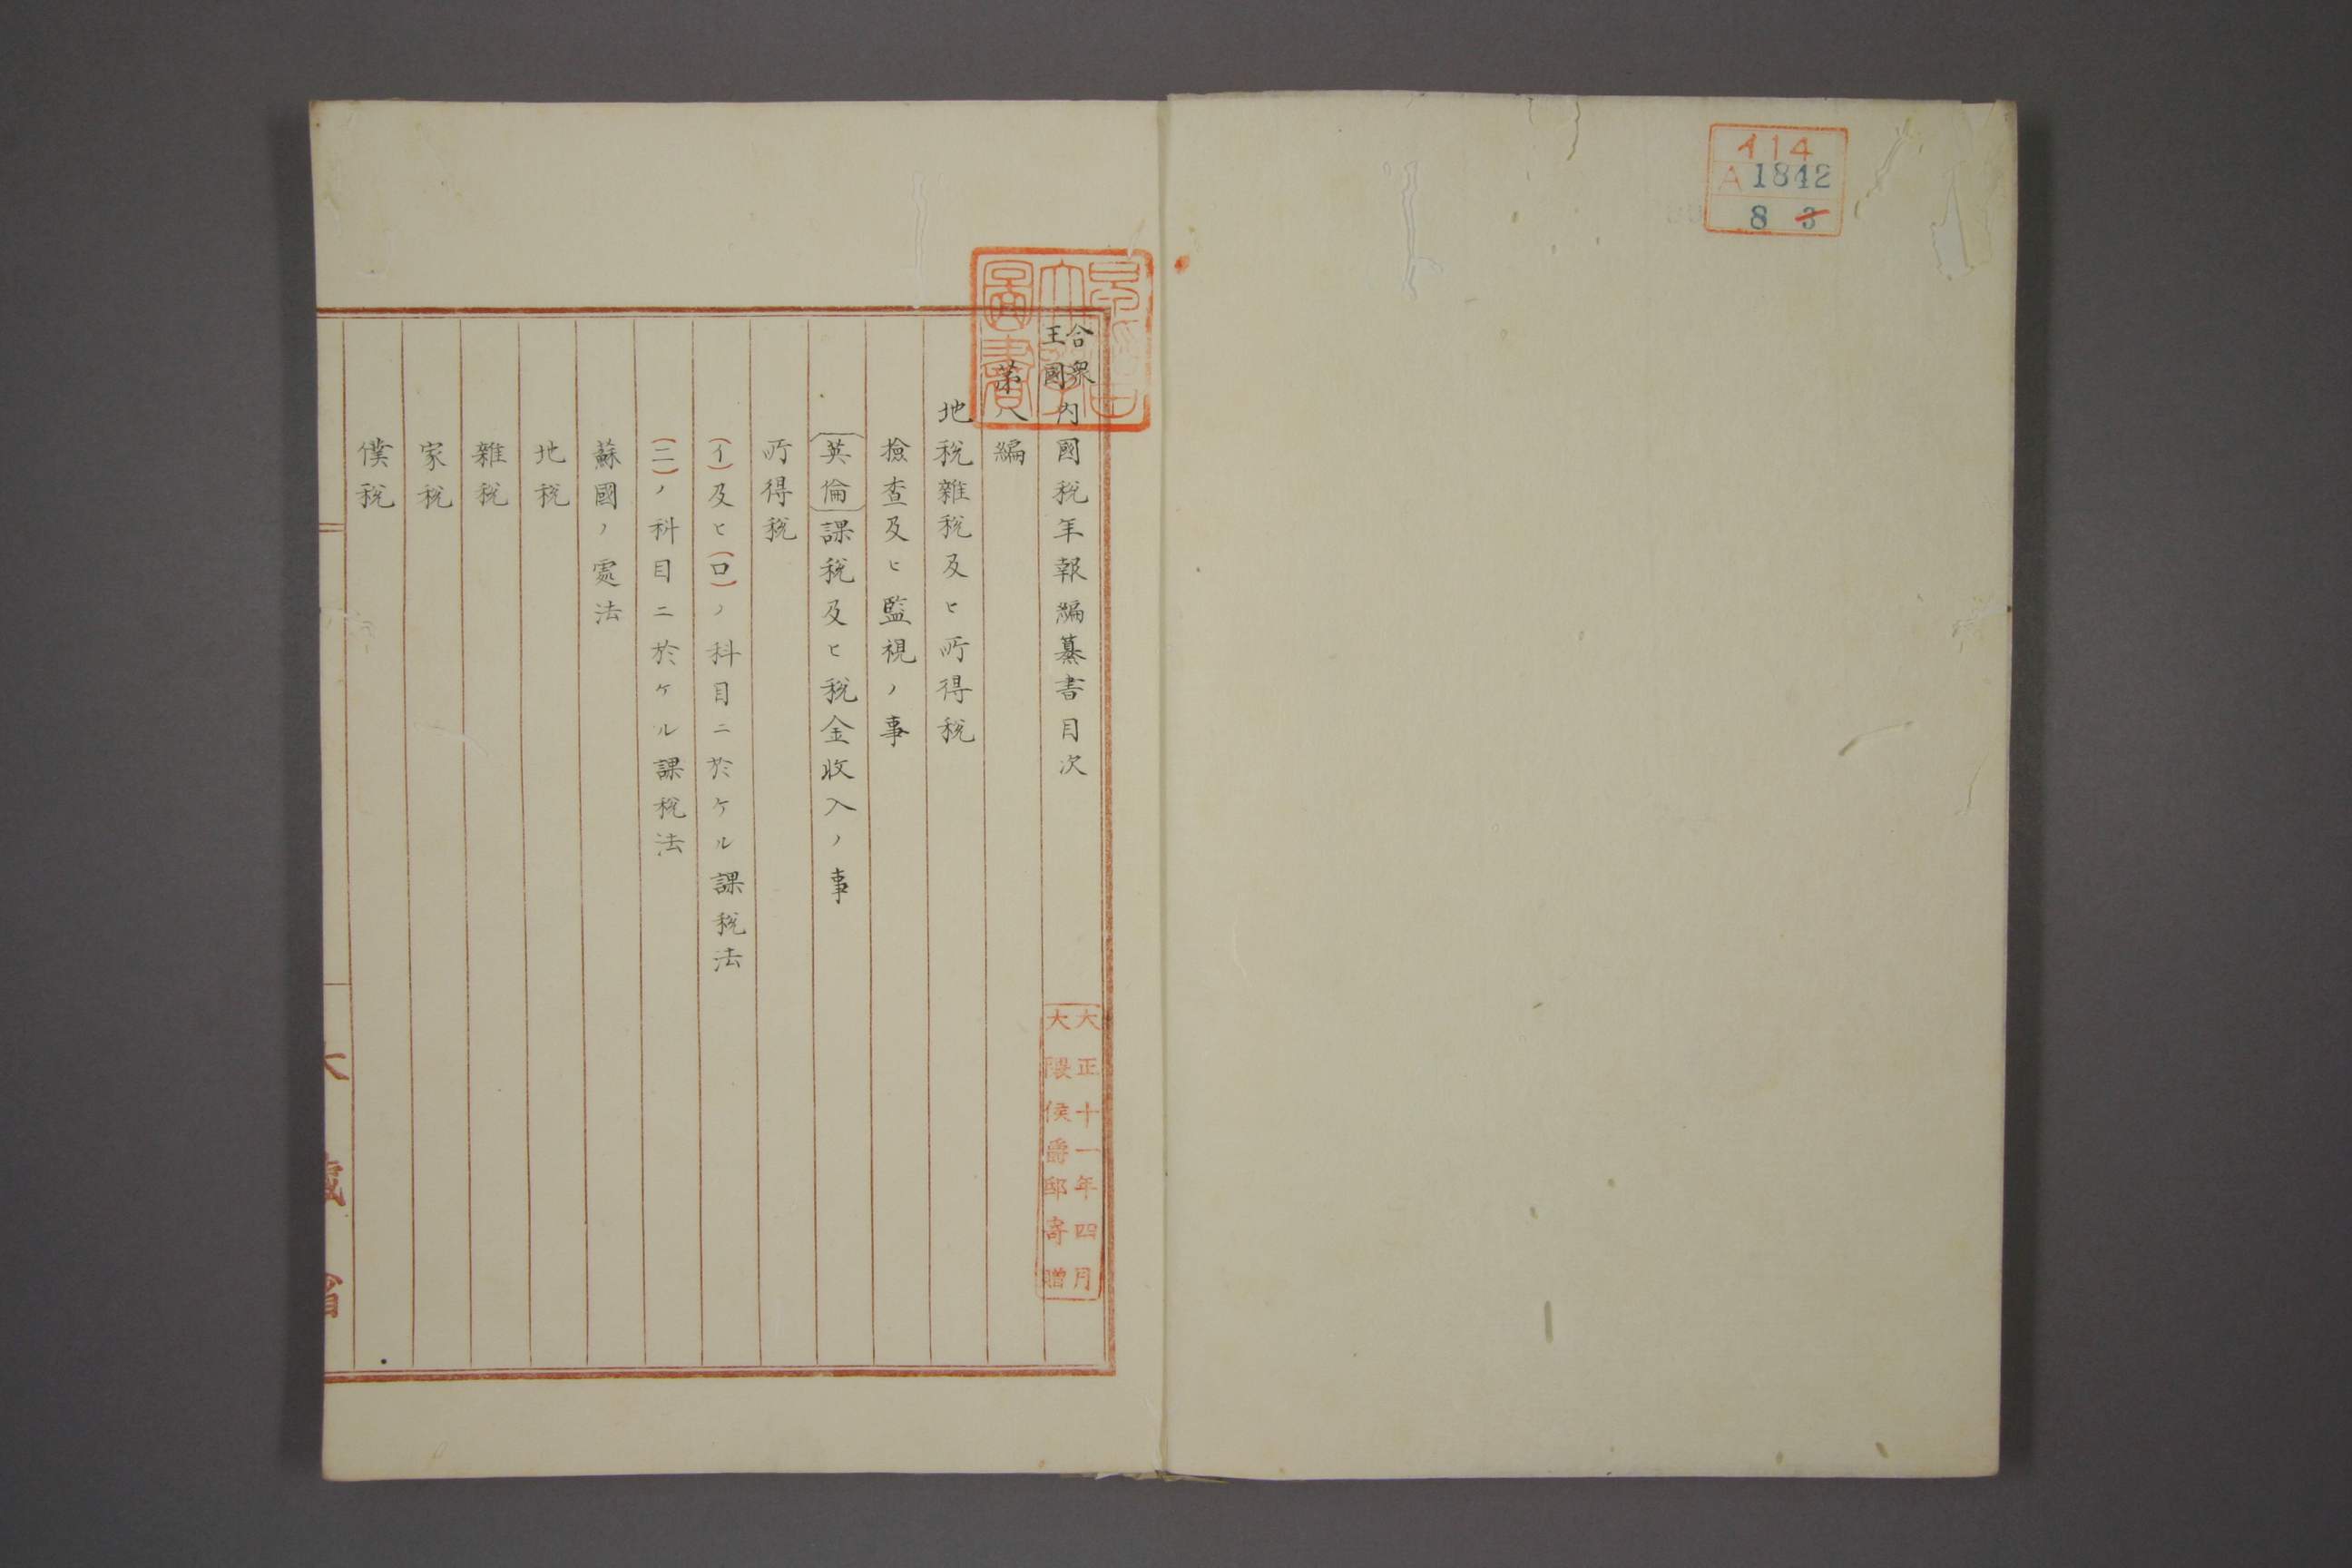 イ14
A 1842
8 3
早稲田
大學
圖書
合衆王國内國税年報編纂書目次
第八編
地税雑税及ヒ所得税
撿査及ヒ監視ノ事
(英倫)課税及ヒ税金收入ノ事
所得税
(イ)及ヒ(ロ)ノ科目ニ於ケル課税法
(ニ)ノ科目ニ於ケル課税法
蘇國ノ處法
地税
雑税
家税
僕税
大藏省
大正十一年四月
大隈侯爵邸寄贈